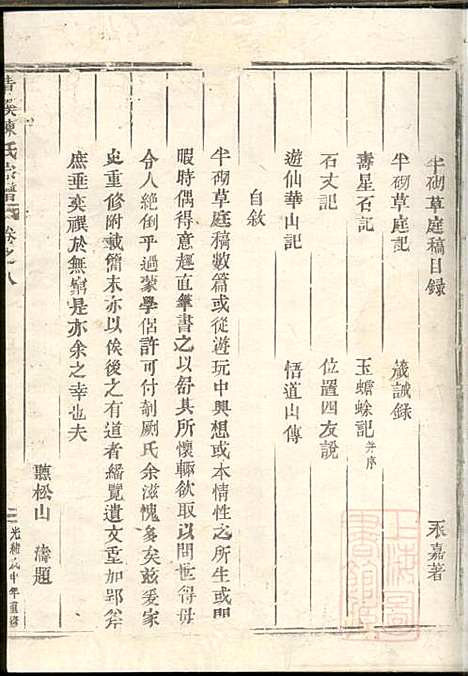 半砌草庭稿目録
永嘉著
半砌草庭記
箴誡録
壽星石記
玉蟾蜍記 并序
石丈記
位置四友說
遊仙華山記
悟道山傳
自敘
半砌草庭稿數篇或從遊玩中興想或本情性之所生或閒
暇時偶得意趣直筆書之以舒其所懷輒欲取以問世得毋
令人絕倒乎過蒙學侶許可付剞劂氏余滋愧矣茲爰家
史重修附載簡末亦以俟後之有道者繙覽遺文重加郢斧
庶垂奕禩於無窮是亦余之幸也夫
聽松山 濤題
陳氏宗譜
卷之八
光緒戊申年重修
上海圖書館藏